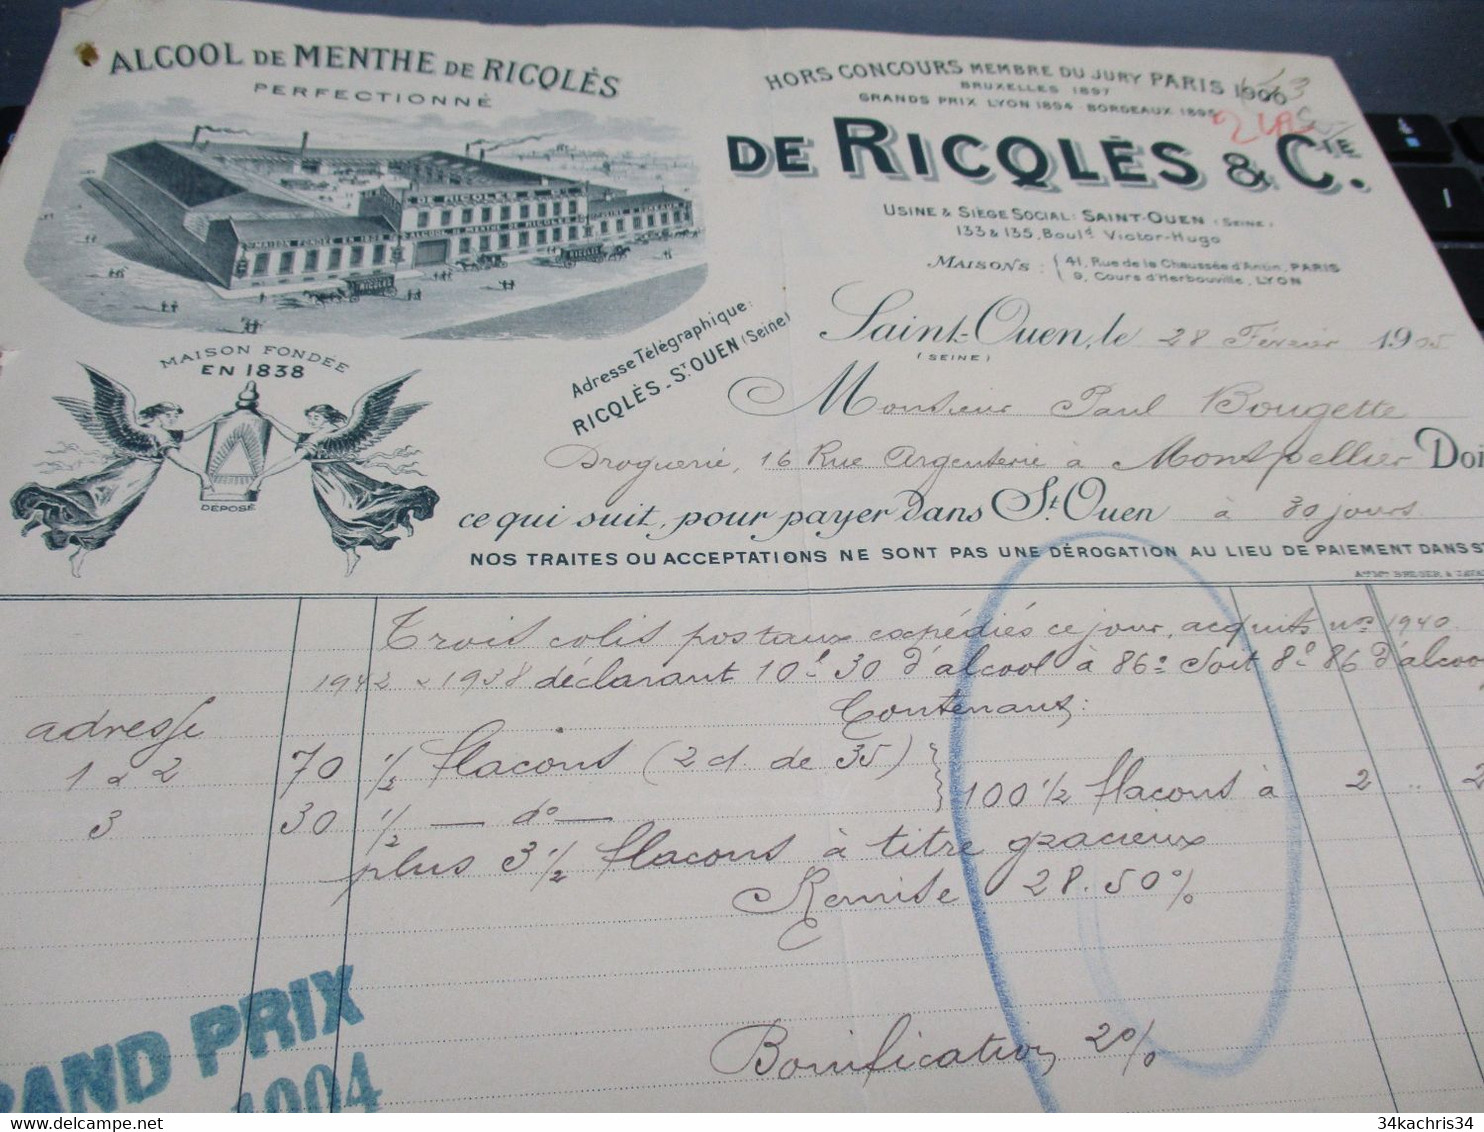 ALCOOL DE MENTHE DE RICQLÈS
PERFECTIONNÉ
HORS CONCOURS MEMBRE DU JURY PARIS 1900
BRUXELLES 1897
GRANDS PRIX LYON 1894 - BORDEAUX 1895
DE RICQLÈS & CIE.
USINE & SIÈGE SOCIAL: SAINT-OUEN (SEINE)
133 & 135, Boul.d Victor-Hugo
MAISONS: 41, Rue de la Chaussée d'Antin, PARIS
9, Cours d'Herbouville, LYON
DE RICQLÈS
MAISON FONDÉE EN 1838 ALCOOL DE MENTHE DE RICQLÈS
RICQLÈS
MAISON FONDEE
EN 1838
DÉPOSÉ
Adresse Télégraphique:
RICQLÈS - ST OUEN (Seine)
Saint-Ouen, le 28 Février 1905
(SEINE)
Monsieur Paul Bougette
Droguerie, 16 Rue Argenterie à Montpellier Doi
ce qui suit, pour payer dans St. Ouen à 30 jours
NOS TRAITES OU ACCEPTATIONS NE SONT PAS UNE DÉROGATION AU LIEU DE PAIEMENT DANS S
Trois colis postaux expédiés ce jour, acquits nos 1940
1942 & 1938 déclarant 10l 30 d'alcool à 86° soit 8l 86 d'alcool
Contenant:
adresse
1 & 2 70 1/2 flacons (2 c/. de 35)
3 30 1/2 — do — 100 1/2 flacons à 2 .. 2
plus 3 1/2 flacons à titre gracieux
Remise 28.50%
Bonification 2%
RAND PRIX
1904
34kachris34